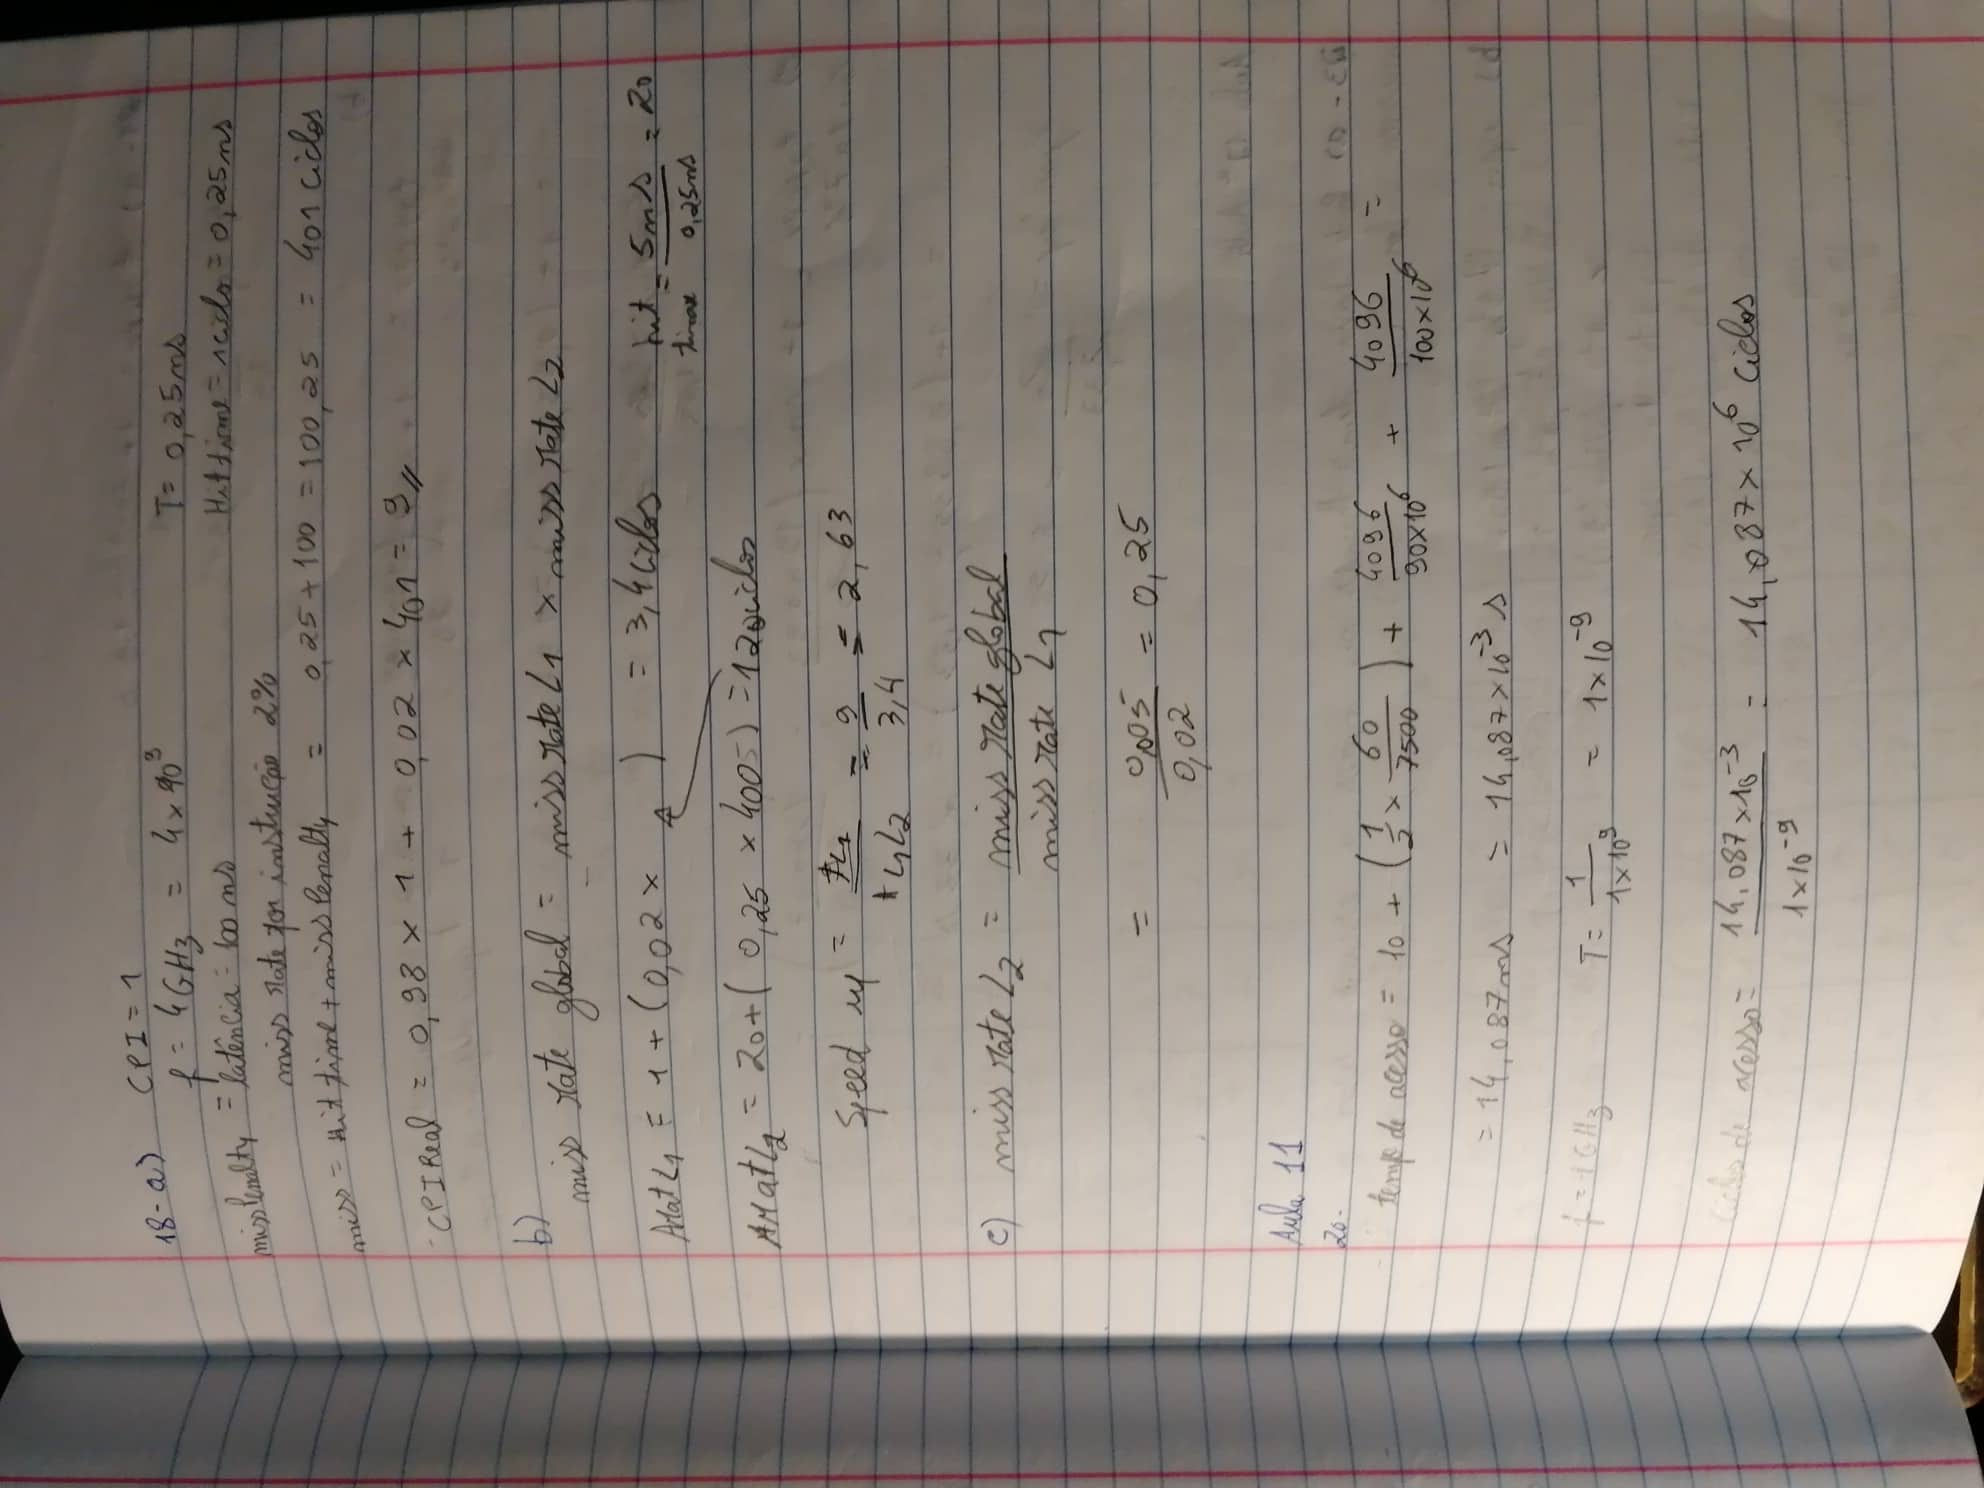 18-a) CPI = 1
f = 4GHz = 4x10³ T = 0,25ms
miss Penalty = latência = 100ns Hit time = 1 ciclo = 0,25ns
miss rate por instrução 2%
miss = Hit time + miss Penalty = 0,25 + 100 = 100,25 = 401 ciclos
CPI Real = 0,98 x 1 + 0,02 x 401 = 9 //
b)
miss rate global = miss rate L1 x miss rate L2
AMatL1 = 1 + (0,02 x ) = 3,4 ciclos hit time = 5ns / 0,25ns = 20
AMatL2 = 20 + (0,25 x 400) = 120 ciclos
Speed up = tL1 / tL1L2 = 9 / 3,4 = 2,63
c) miss rate L2 = miss rate global / miss rate L1
= 0,005 / 0,02 = 0,25
Aula 11
20-
tempo de acesso = 10 + (1/2 x 60/7500) + 4096/90x10⁶ + 4096/100x10⁶ =
= 14,087ms = 14,087x10⁻³ s
f = 1GHz T = 1/1x10⁹ = 1x10⁻⁹
Ciclos de acesso = 14,087x10⁻³ / 1x10⁻⁹ = 14,087x10⁶ ciclos